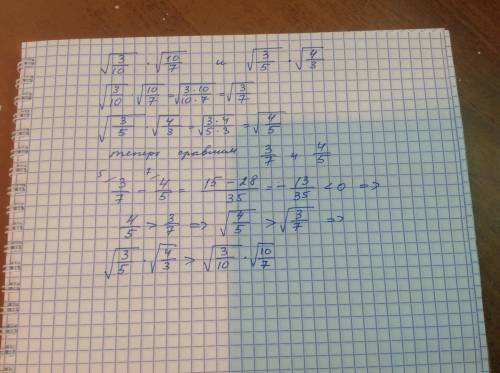 √(3/10) · √(10/7) и √(3/5) · √(4/3)
√(3/10) √(10/7) = √(3·10/10·7) = √(3/7)
√(3/5) · √(4/3) = √(3·4/5·3) = √(4/5)
теперь сравним 3/7 и 4/5
5 3/7 - 7 4/5 = 15 - 28/35 = - 13/35 < 0 =>
4/5 > 3/7 => √(4/5) > √(3/7) =>
√(3/5) · √(4/3) > √(3/10) · √(10/7)